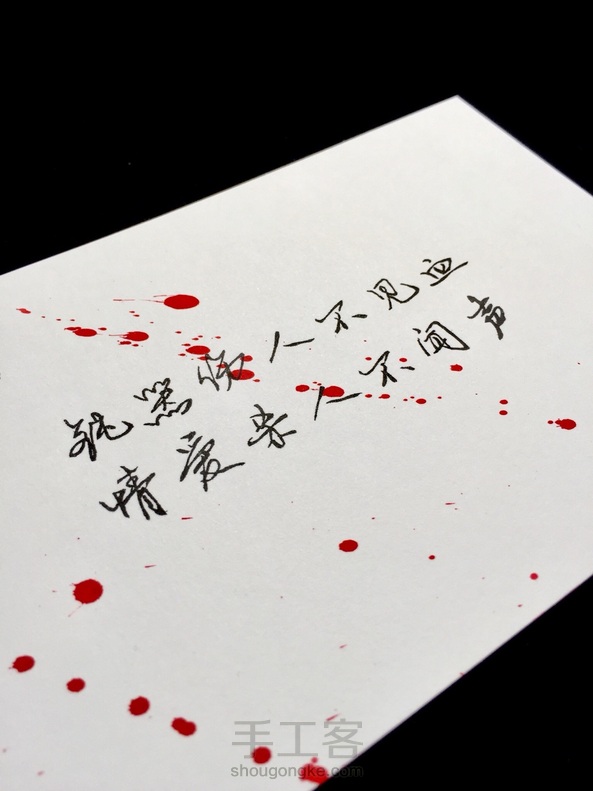 人不见血
情爱杀人不闻声
手工客
shougongke.com